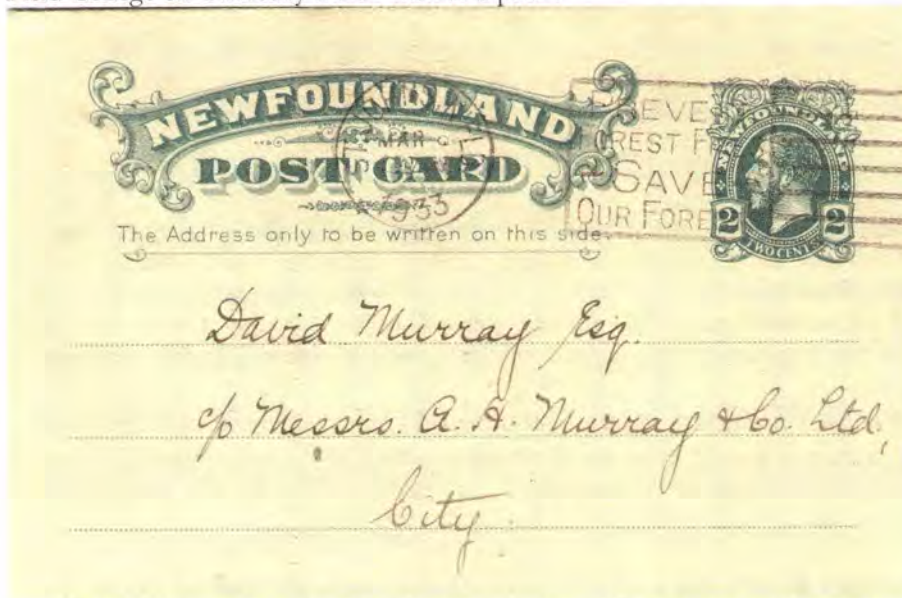 NEWFOUNDLAND
POST CARD
The Address only to be written on this side.
MAR
1933
SAVE
OUR FORE
NEWFOUNDLAND
2 2
TWO CENTS
David Murray Esq.
c/o Messrs. A. H. Murray & Co. Ltd,
City.